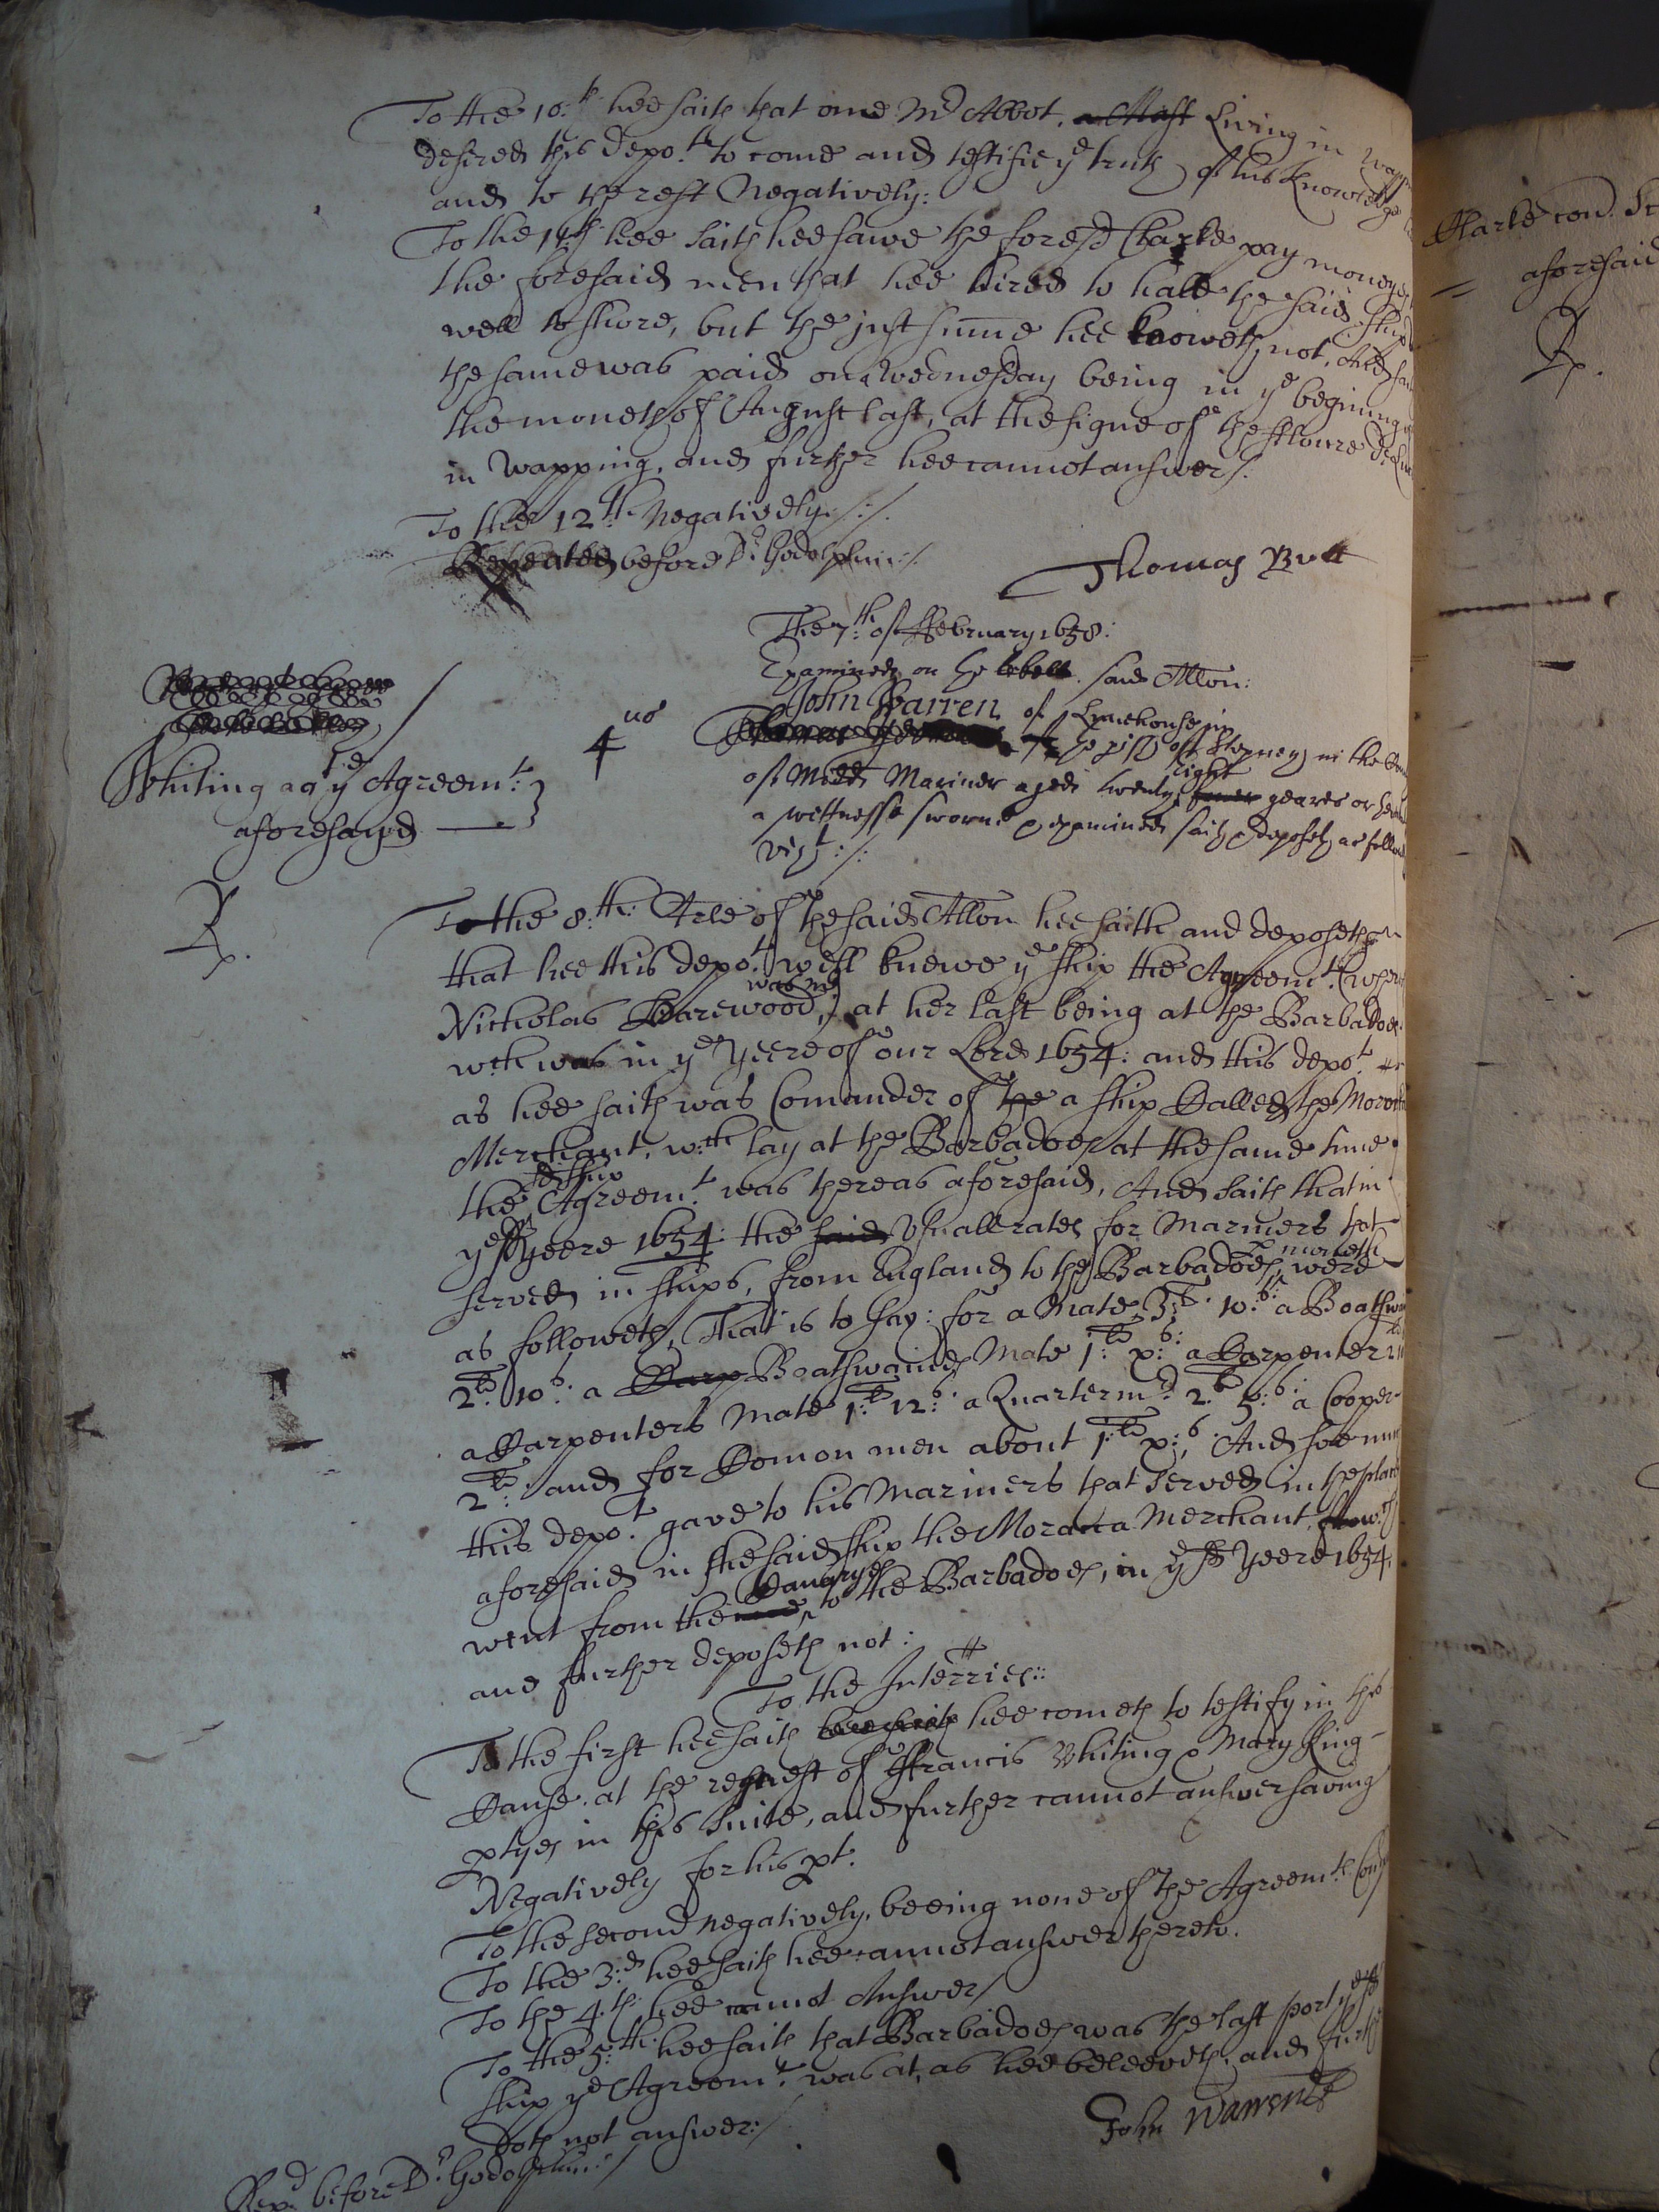 To the 10:th hee saith that one Mr Abbot, Living in Wapp
desired this depo:t to come and testifie ye truth of his knowledge
and to the rest Negatively:
To the 11th hee saith hee sawe the foresd Clarke pay moneyes
the foresaid men that hee hired to hale the said ship
well to shore, but the just summe hee knoweth not, And saith
the same was paid on a Wednesday being in ye begining of
the moneth of August last, at the signe of the ffloure de Luce
in Wapping, and further hee cannot answer /.
To the 12th Negatively ./:/.
Repeated before Dr Godolphin :/
Thomas Butt
The 7:th of ffebruary 1658:
Examined on the said Allon:
4us
John Warren of Limehouse in
the pish of Stepney in the
of Middx Mariner aged twenty eight yeares or
a wittnesse sworne & examined saith & deposeth as
vizt :/:
Whiting agt ye Agreemt:
aforesayd
R.
To the 8:th: Arle of the said Allon hee saith and deposeth
that hee this depo:t well knewe ye ship the Agreemt: (
Nicholas Harewood was mr) at her last being at the Barbadoes
wch was in ye Yeere of our Lord 1654: and this depo:t
as hee saith was Comander of the a ship Called the
Merchant, wch lay at the Barbadoes at the same time
the sd ship Agreemt was there as aforesaid, And saith that in
ye sd yeere 1654: the said Usuall rates for Mariners that
served in ships, from England to the Barbadoes p moneth were
as followeth, That is to say: for a Mate 3:li 10:s: a Boatsw
2:li 10s: a Carp Boatswaines Mate 1:li x:s: a Carpenter
a Carpenters Mate 1:li 12:s: a Quarterm:r 2:li 5:s: a Cooper
2:li: and for Comon men about 1:li x:s, And soe
this depo:t gave to his Mariners that served in the place
aforesaid in the said ship the Morocca Merchant, wch
went from the Canaryes to the Barbadoes, in ye sd Yeere 1654,
and further deposeth not:
To the Interries::
To the first hee saith hee saith hee cometh to testify in this
Cause at the request of ffrancis Whiting & Mary King
ptyes in this Suite, and further cannot answer saving
Negatively for his pt.
To the second negatively, beeing none of the Agreemts
To the 3:d hee saith hee cannot answer thereto.
To the 4:th hee cannot Answer /
To the 5:th hee saith that Barbadoes was the last port ye sd
ship ye Agreemt: was at, as hee beleeveth, and
doth not answer:/
Repd before Dr Godolphin:/
John Warren
Clarke con. 
aforesaid
R.